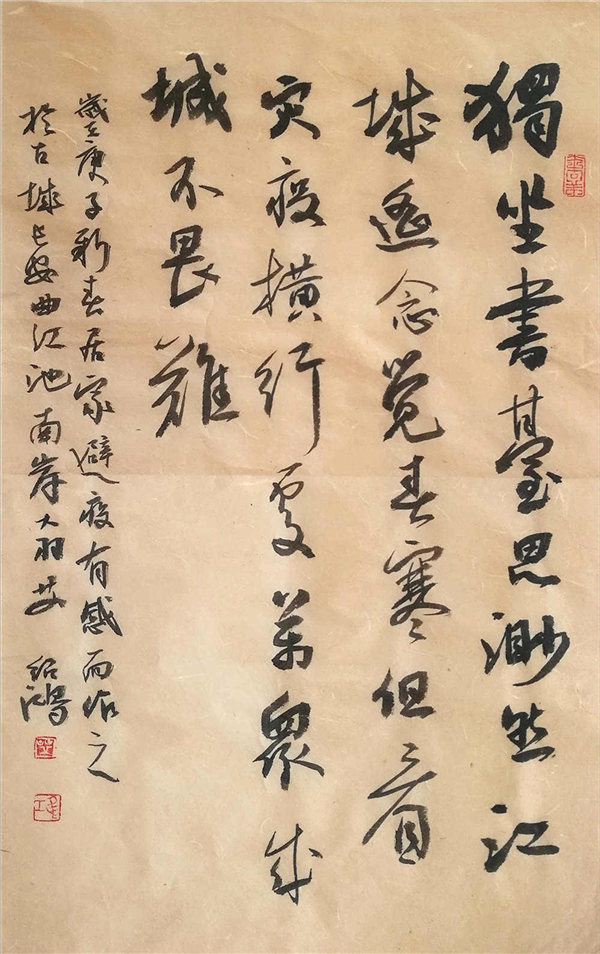 獨坐書臺思渺然江
城遙念覺春寒但看
灾疫橫行處萬眾成
城不畏難
歲在庚子新春居家避疫有感而作之
於古城長安曲江池南岸大羽 紹鴻